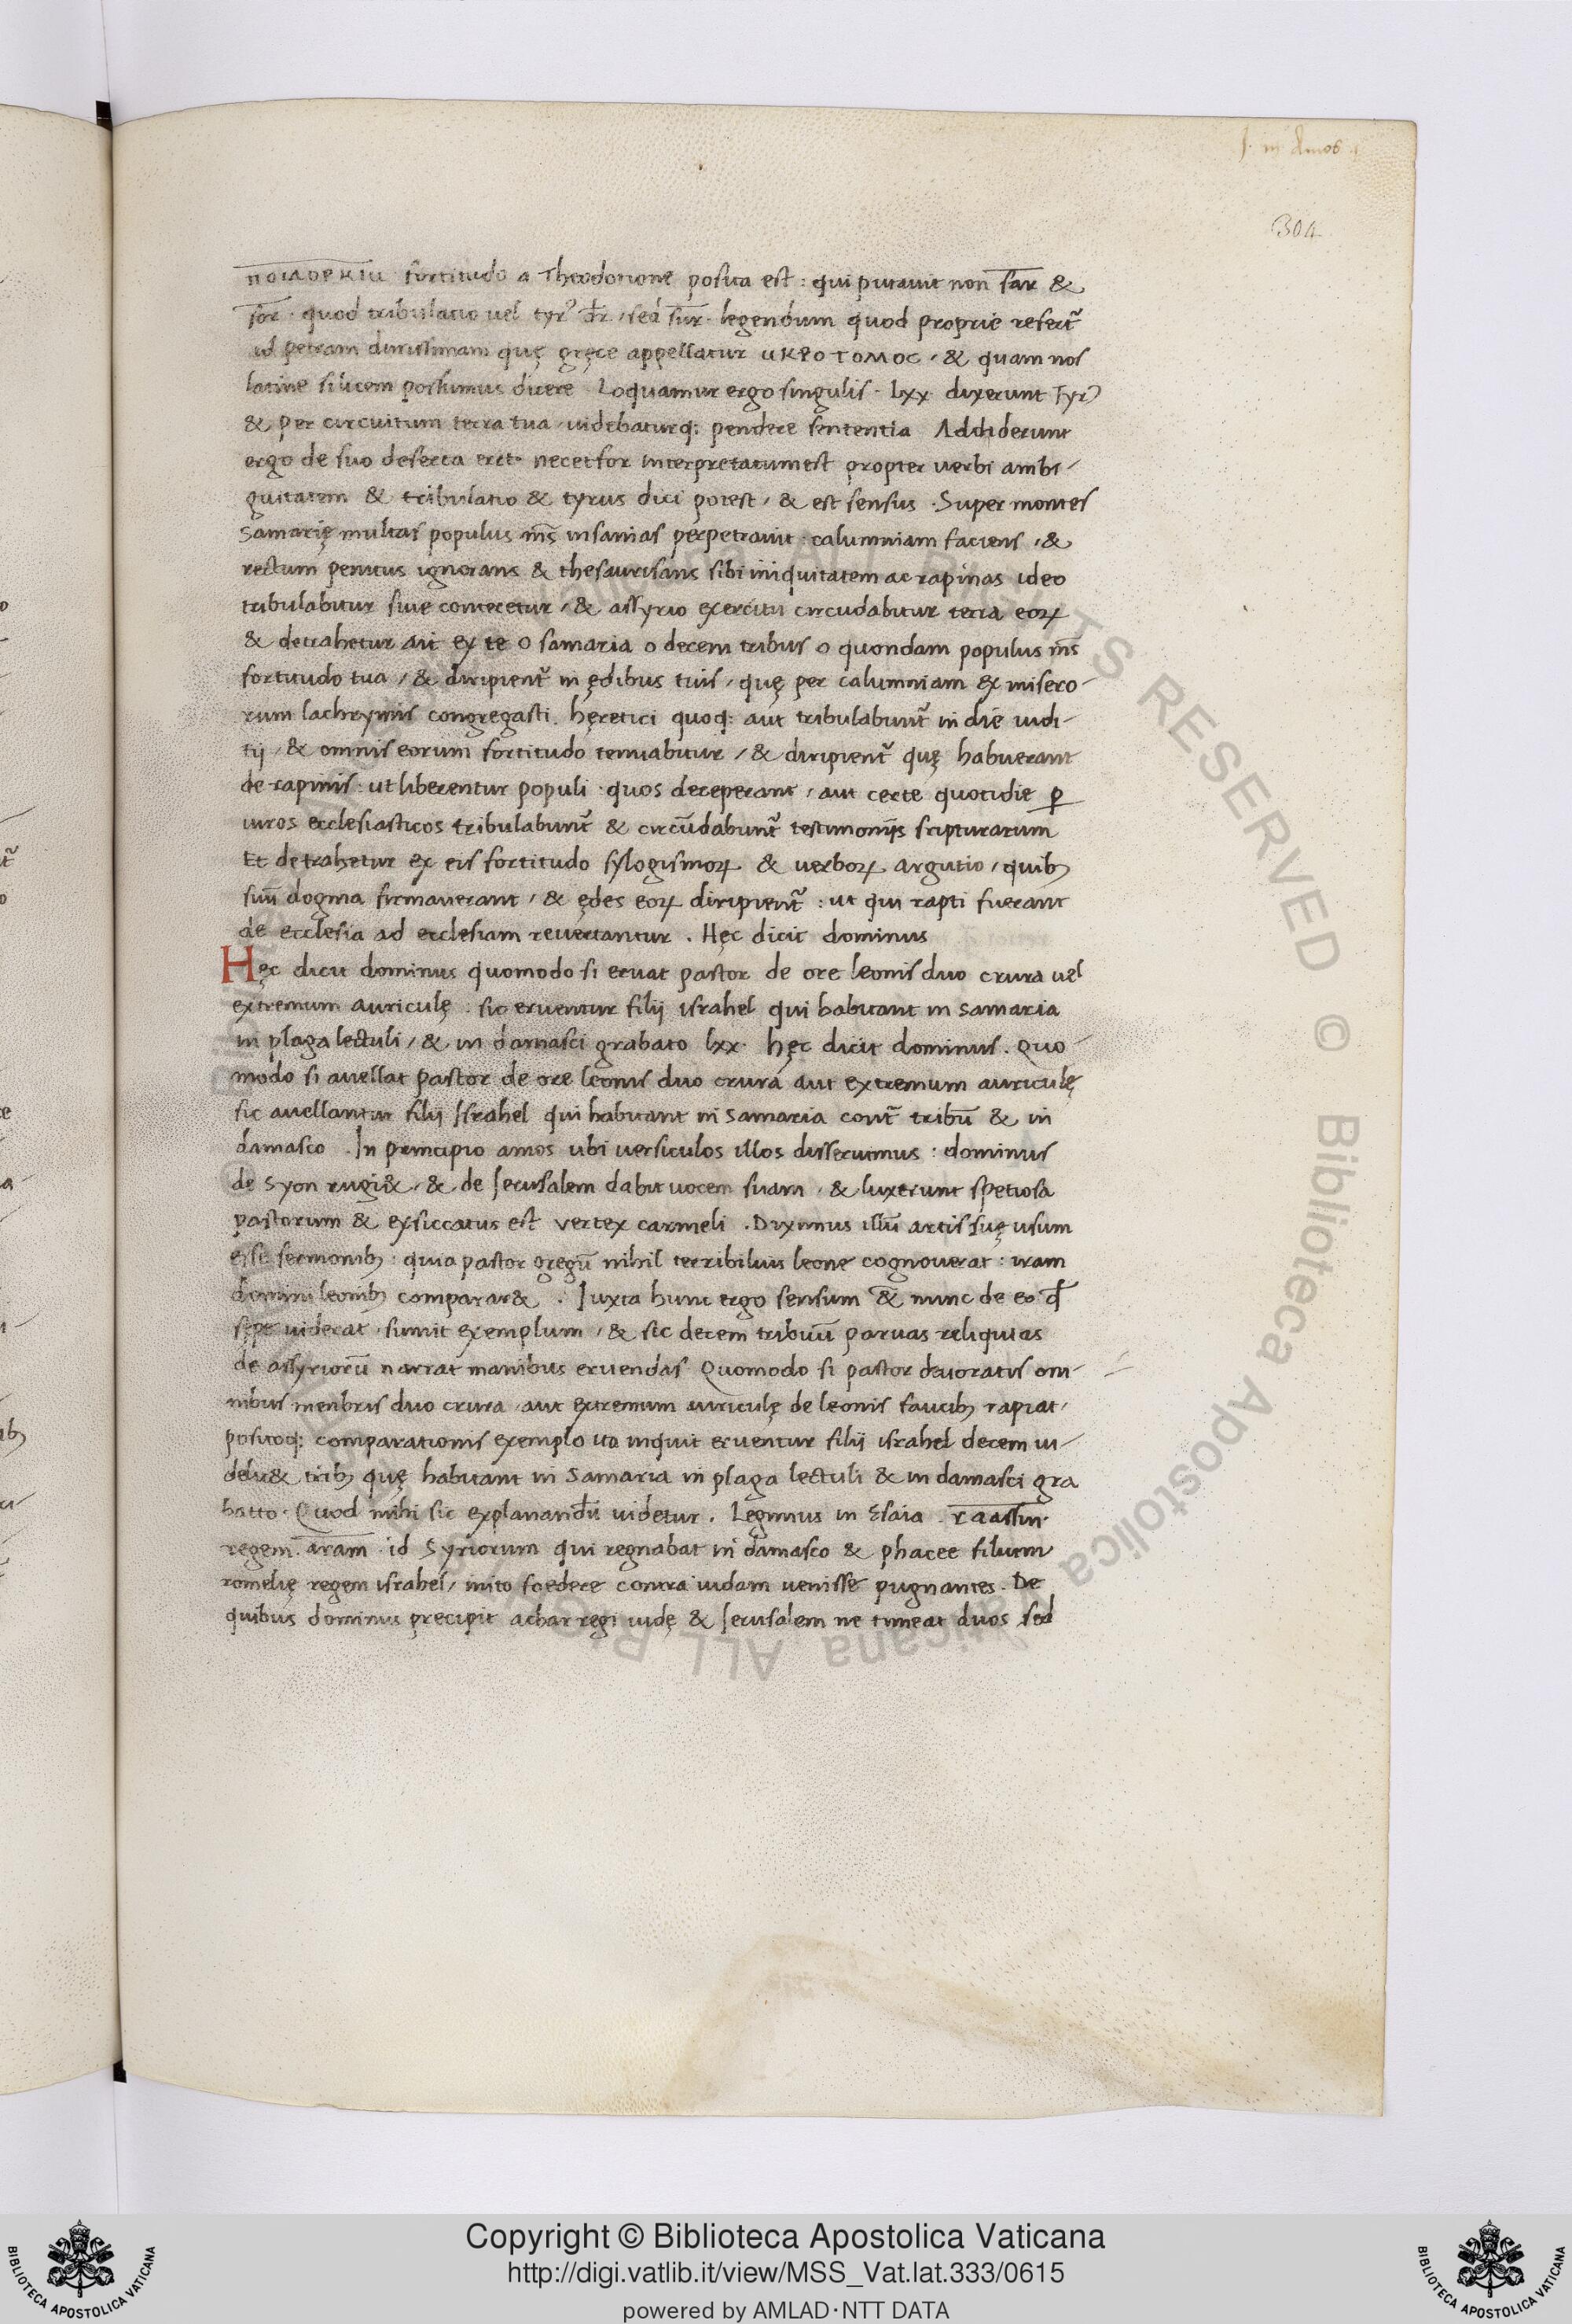 J. in Amos
304
fortitudo a Theodotione posita est : qui putauit non sar &
sor · quod tribulatio uel tyr᾽ dr̄, sed sur · legendum quod proprie refert᷑
ad petram durissimam quę gręce appellatur ακροτομοс, & quam nos
latine silicem possumus dicere Loquamur ergo singulis · lxx dixerunt Tyr᾽
& per circuitum terra tua uidebaturq; pendere sententia Addiderunt
ergo de suo deserta erit · necetsor interpretatum est propter uerbi ambi-
guitatem & tribulatio & tyrus dici potest, & est sensus . Super montes
Samarię multas populus m̄s insanias perpetrauit : calumniam faciens, &
rectum penitus ignorans & thesaurisans sibi iniquitatem ac rapinas ideo
tribulabitur siue conteretur, & assyrio exercitu circudabitur terra eoꝝ
& detrahetur ait ex te o samaria o decem tribus o quondam populus m̄s
fortitudo tua, & diripient᷑ in ędibus tuis, quę per calumniam ex misero-
rum lachrymis congregasti. hęretici quoq; aut tribulabunt᷑ in die iudi-
tij, & omnis eorum fortitudo tenuabitur, & diripient᷑ quę habuerant
de rapinis : ut liberentur populi · quos deceperant, aut certe quotidie ꝑ
uiros ecclesiasticos tribulabunt᷑ & circūdabunt᷑ testimonijs scripturarum
Et detrahetur ex eis fortitudo sylogismoꝝ & uerboꝝ argutio, quibꝫ
suū dogma firmauerant, & ędes eoꝝ diripient᷑ : ut qui rapti fuerant
de ecclesia ad ecclesiam reuertantur . Hęc dicit dominus
Hęc dicit dominus quomodo si eruat pastor de ore leonis duo crura uel
extremum auriculę . sic eruentur filij israhel qui habitant in samaria
in plaga lectuli, & in damasci grabato lxx · hęc dicit dominus. Quo-
modo si auellat pastor de ore leonis duo crura aut extremum auriculę
sic auellantur filij Israhel qui habitant in Samaria cont᷑ tribū & in
damasco . In principio amos ubi uersiculos illos disseruimus : dominus
de Syon rugi&, & de Jerusalem dabit uocem suam, & luxerunt spetiosa
pastorum & exsiccatus est vertex carmeli . Diximus illū artis suę usum
esse sermonibꝫ : quia pastor gregū nihil terribilius leone cognouerat : iram
domini leonibꝫ comparar& . Juxta hunc ergo sensum & nunc de eo qđ
sępe uiderat, sumit exemplum, & sic decem tribuū paruas reliquias
de assyriorū narrat manibus eruendas Quomodo si pastor deuoratis om-
nibus menbris duo crura, aut extremum auriculę de leonis faucibꝫ rapiat,
positoq; comparationis exemplo ita inquit eruentur filij israhel decem ui-
delic& tribꝫ quę habitant in Samaria in plaga lectuli & in damasci gra
batto · Quod mihi sic explanandū uidetur . Legimus in Esaia . raassin·
regem. aram · id Syriorum qui regnabat in damasco & phacee filium
romelię regem israhel, inito foedere contra iudam uenisse pugnantes. De
quibus dominus precipit achar regi iudę & Jerusalem ne timeat duos sed
Copyright © Biblioteca Apostolica Vaticana
http://digi.vatlib.it/view/MSS_Vat.lat.333/0615
powered by AMLAD·NTT DATA